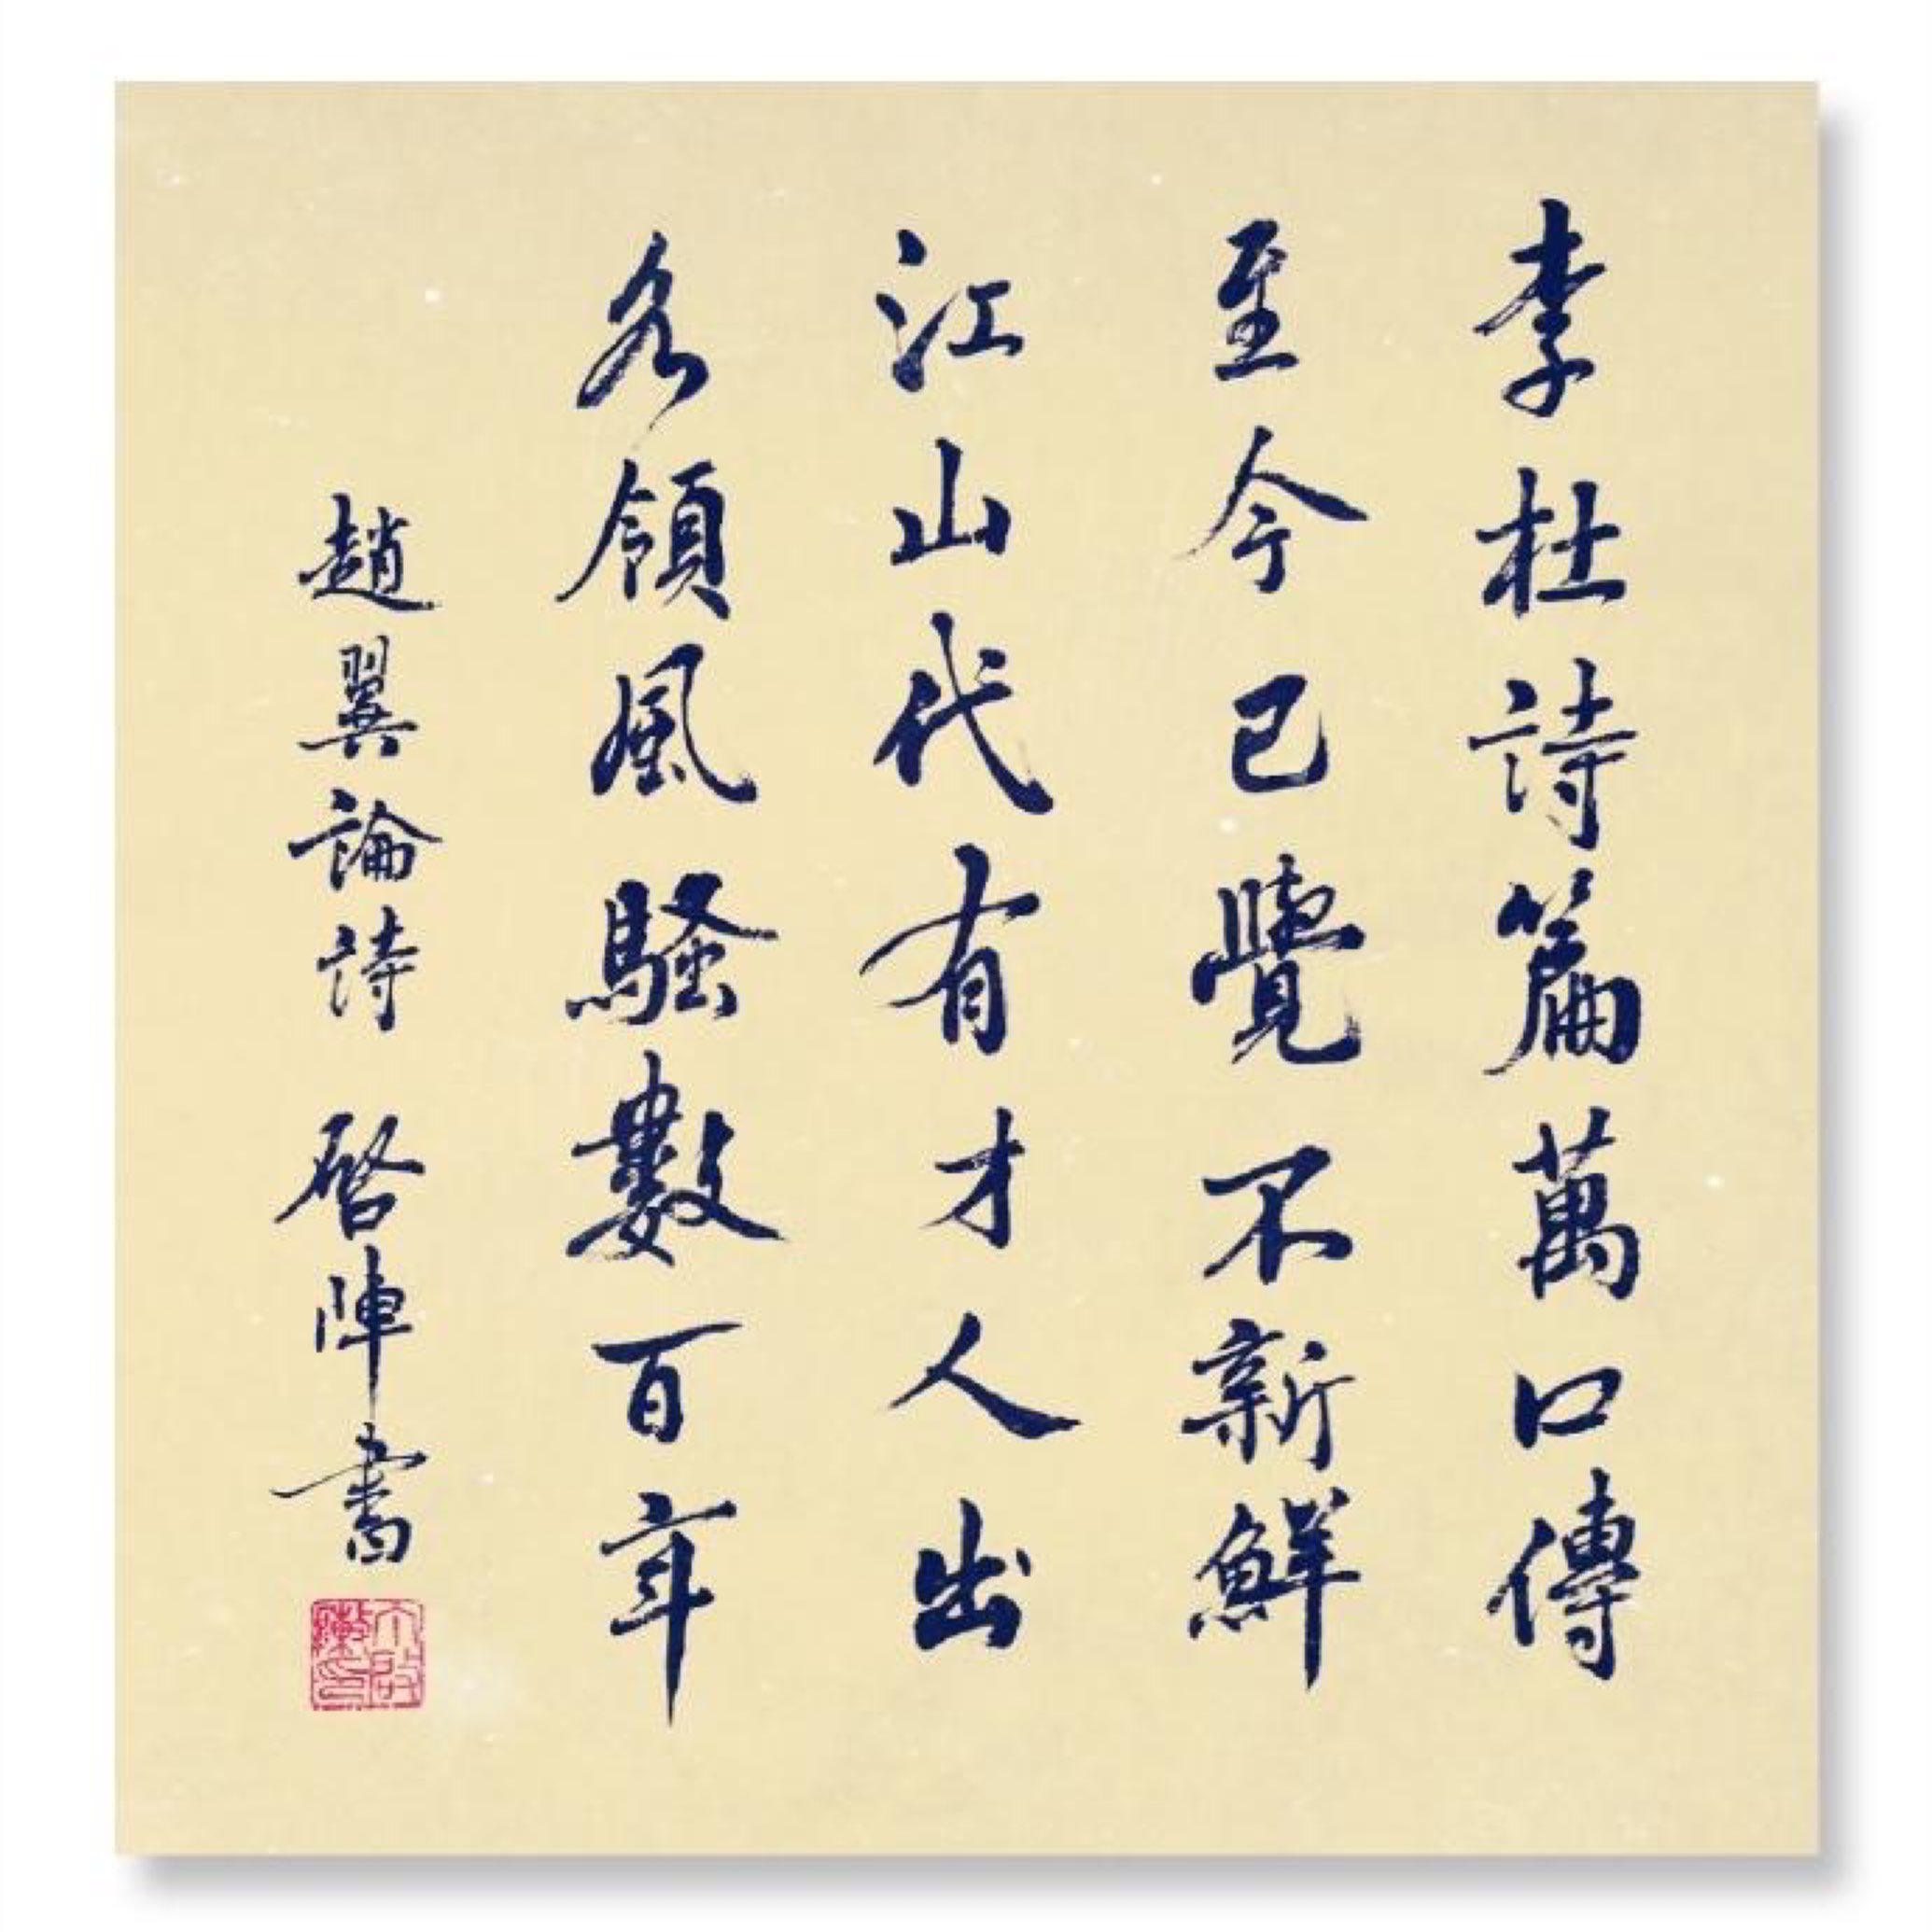 李杜詩篇萬口傳
至今已覺不新鮮
江山代有才人出
各領風騷數百年
趙翼論詩 啓陣書